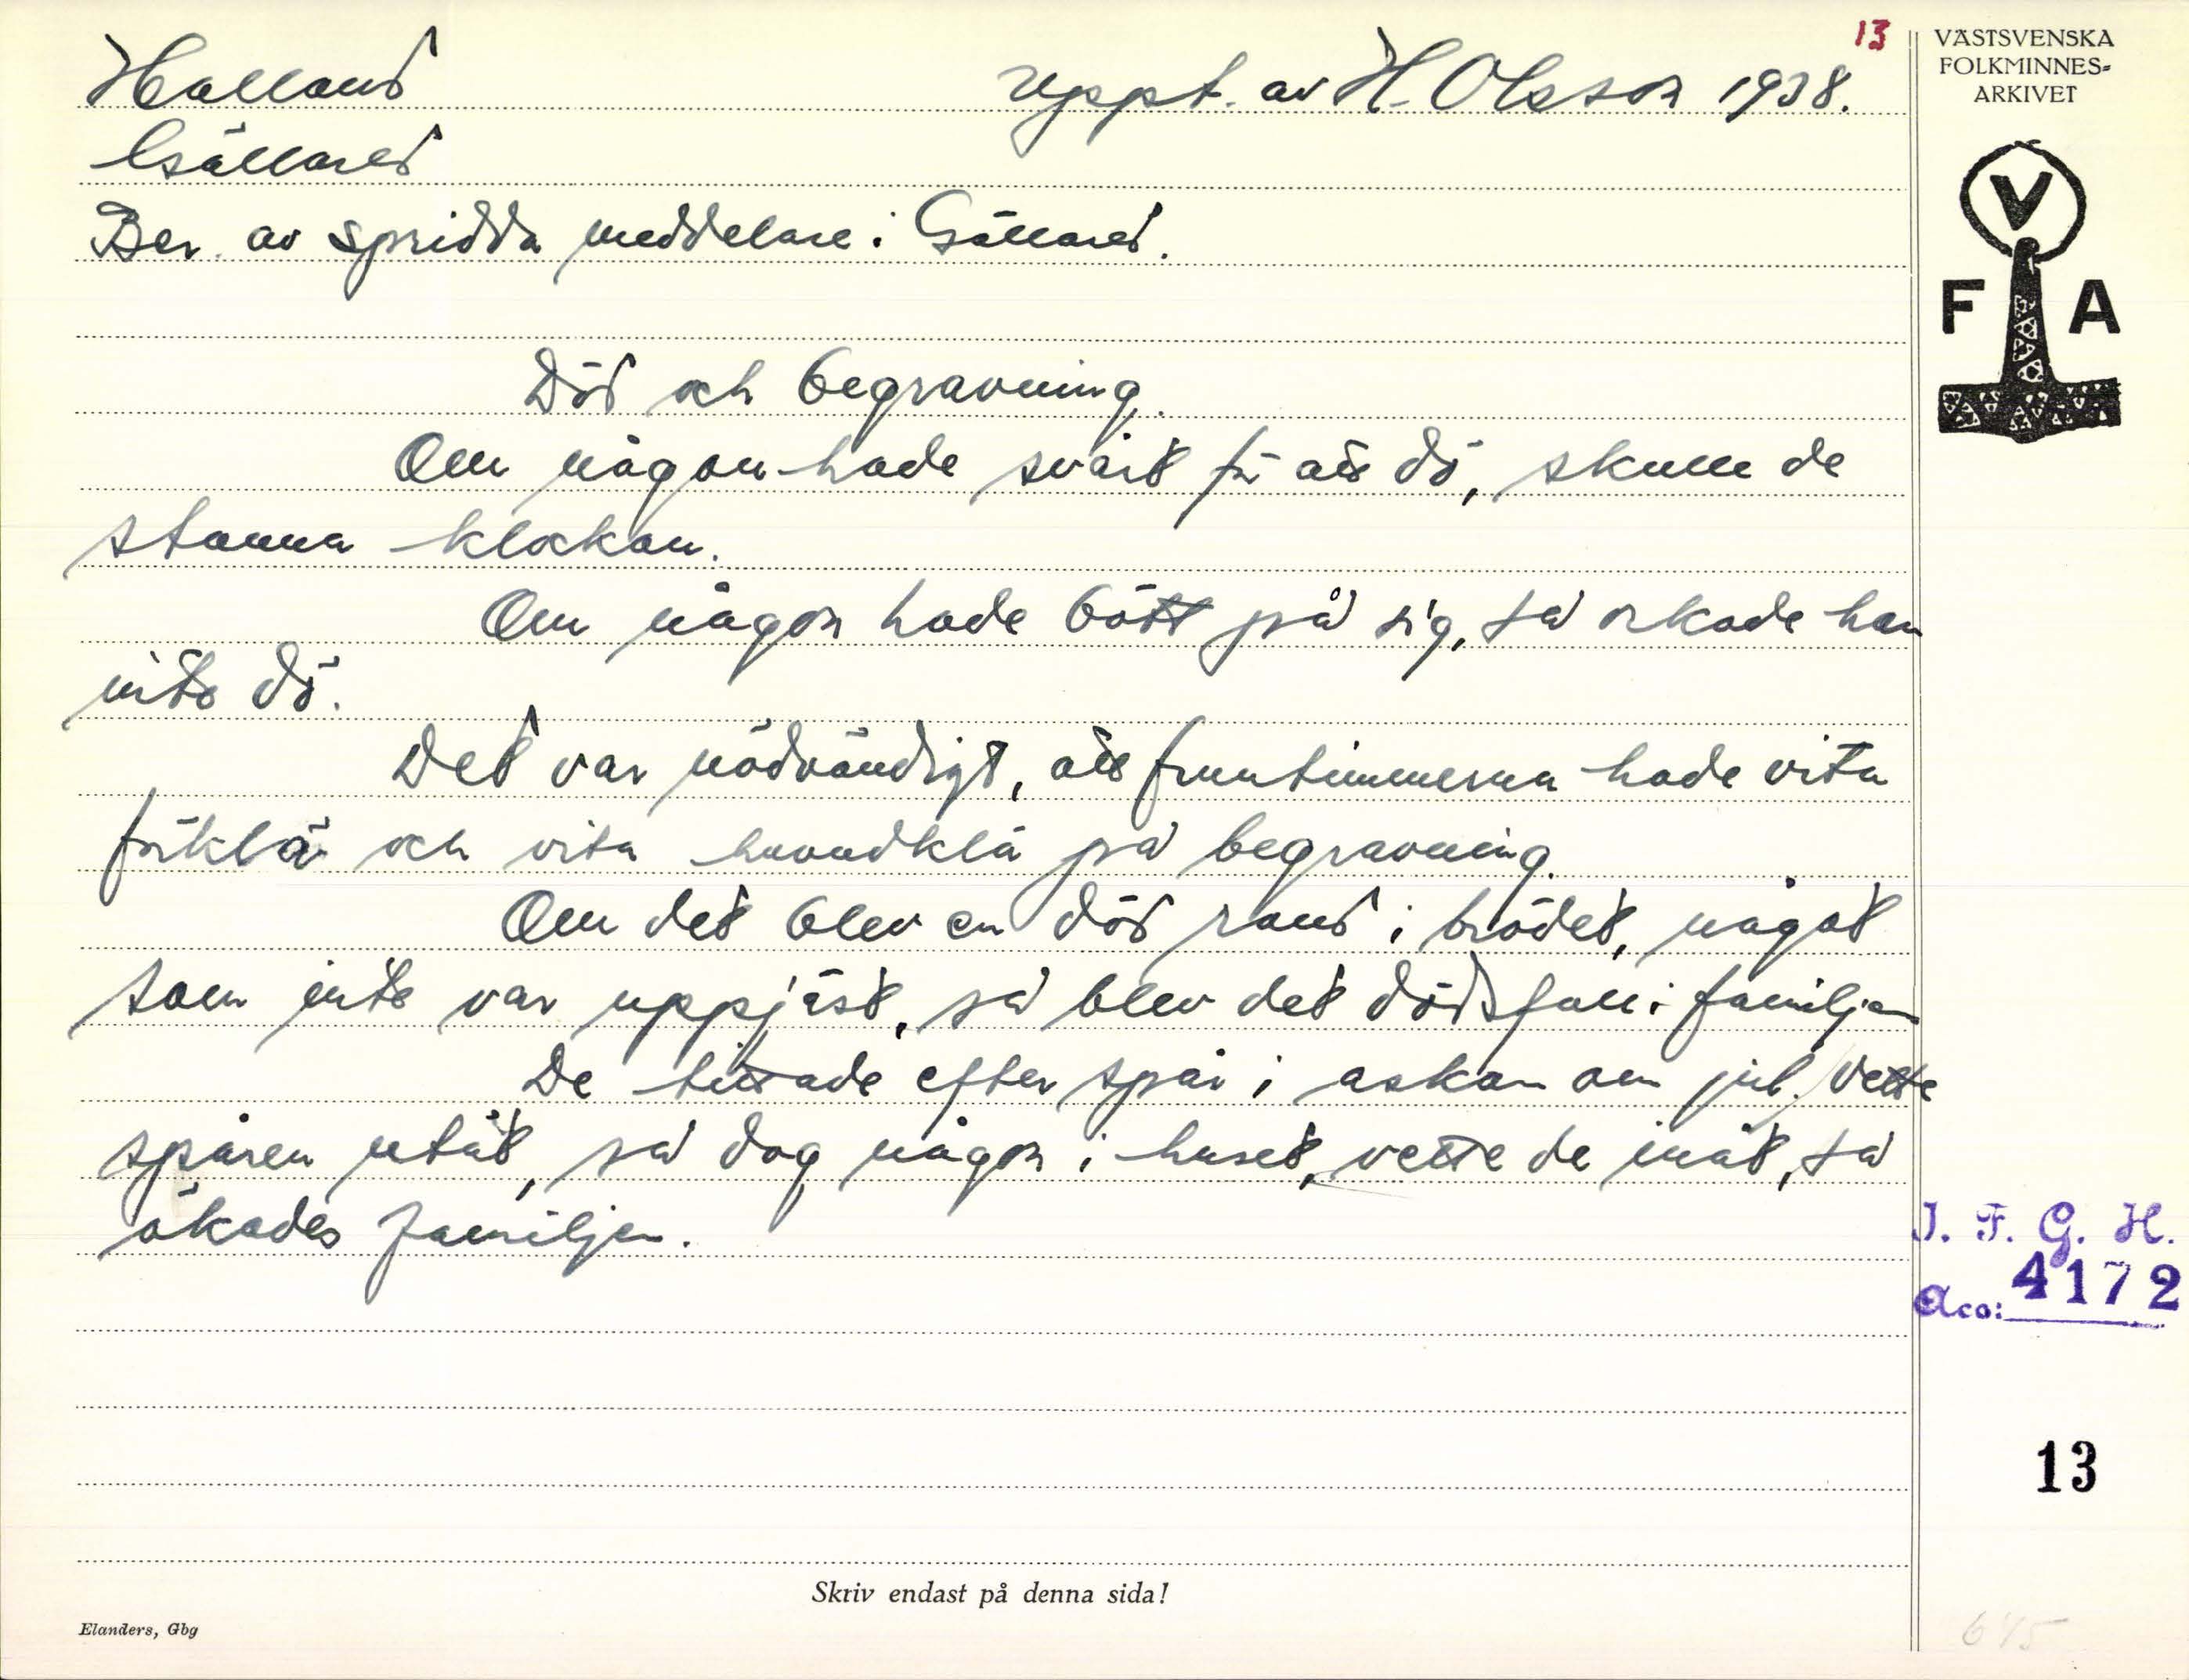 13
Halland Uppt. av H. Olsson 1938.
Gällared
Ber. av spridda meddelare i Gällared.
Död och begravning.
Om någon hade svårt för att dö, skulle de
stanna klockan.
Om någon hade bött på sig, så orkade han
inte dö.
Det var nödvändigt, att fruntimmerna hade vita
förklä och vita huvudklä på begravning.
Om det blev en död rand i brödet, något
som inte var uppjäst, så blev det dödsfall i familjen
De tittade efter spår i askan om jul. Vette
spåren utåt, så dog någon i huset, vette de inåt, så
ökades familjen.
VÄSTSVENSKA
FOLKMINNES-
ARKIVET
V
F A
I. F. G. H.
Acc: 4172
13
Skriv endast på denna sida!
Elanders, Gbg